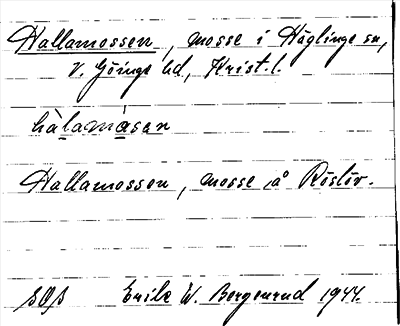 Hallamossen, mosse i Häglinge sn,
V. Göinge hd, Krist. l.
hàlamåsan
Hallamossen, mosse å Röslöv.
SOS Erik W. Bergenrud 1944.